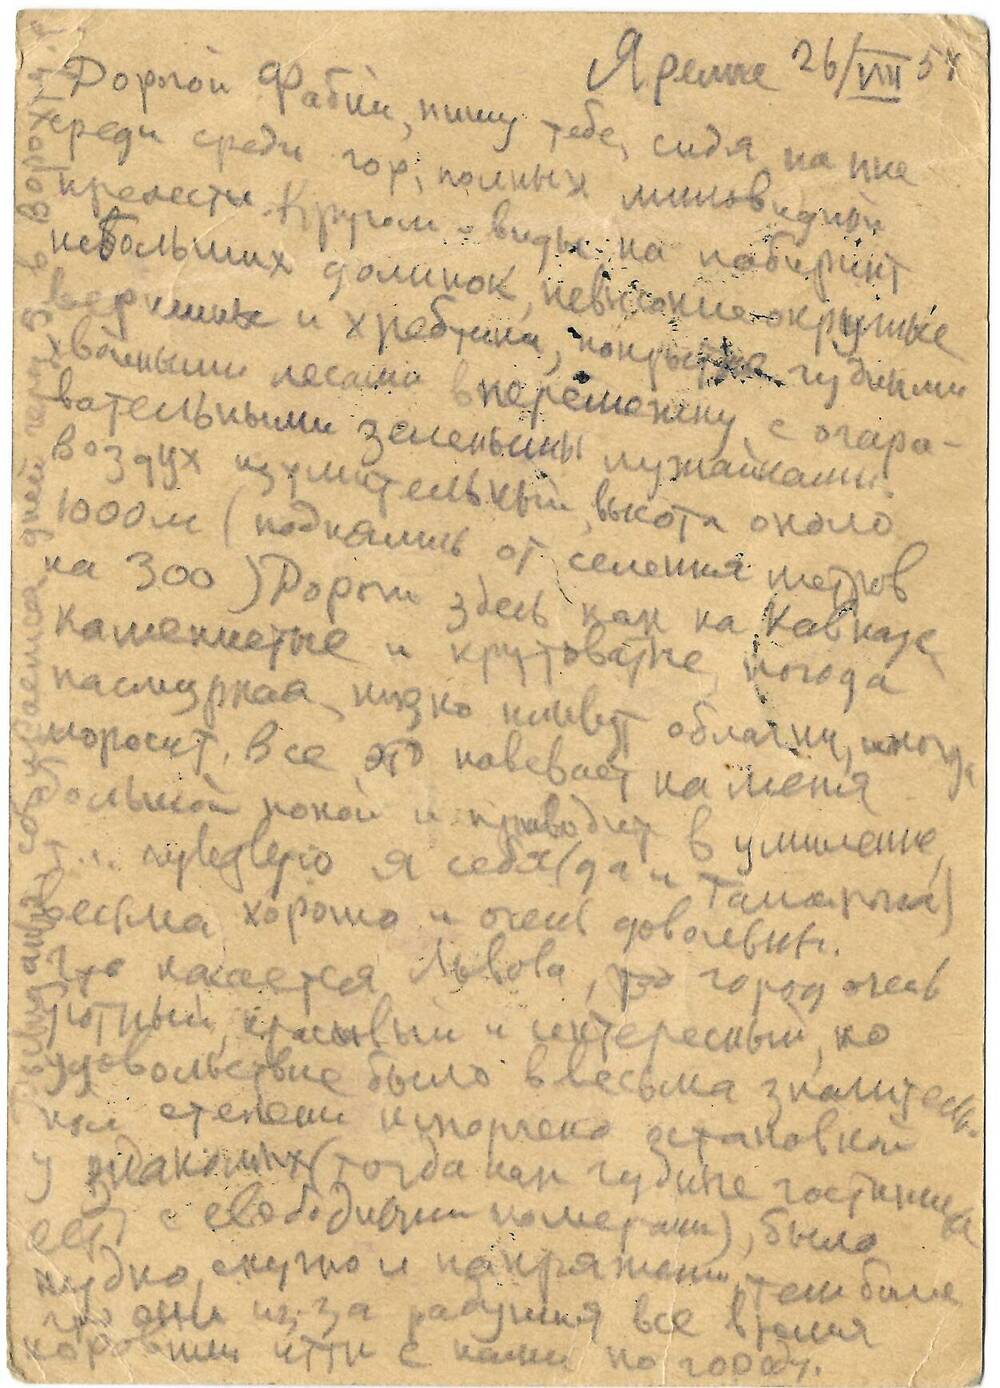 Яремче 26/VIII 54
Дорогой Фабки, пишу тебе, сидя на пне
среди среди гор, полных миловидной
прелести. Кругом – виды на лабиринт
небольших долинок, невысокие округлые
вершины и хребтики, покрытые чудными
хвойными лесами вперемежку с очаро-
вательными зелеными лужайками.
Воздух изумительный, высота около
1000 м (поднялись от селения метров
на 300) Дороги здесь как на Кавказе,
каменистые и крутоватые, погода
пасмурная, низко плывут облачки, иногда
моросит. Все это навевает на меня
большой покой и приводит в умиление,
я себя (да и
весьма хорошо и очень довольны.
Что касается Львова, то город очень
уютный, красивый и интересный, но
удовольствие было в весьма значитель-
ной степени испорчено остановкой
у знакомых (тогда как чудные гостиницы
есть с свободными номерами), было
нудно, скучно и напряженно, тем более
что они из-за радушия все время
идти с нами по городу.
собираемся дней через 3 в Ворохту